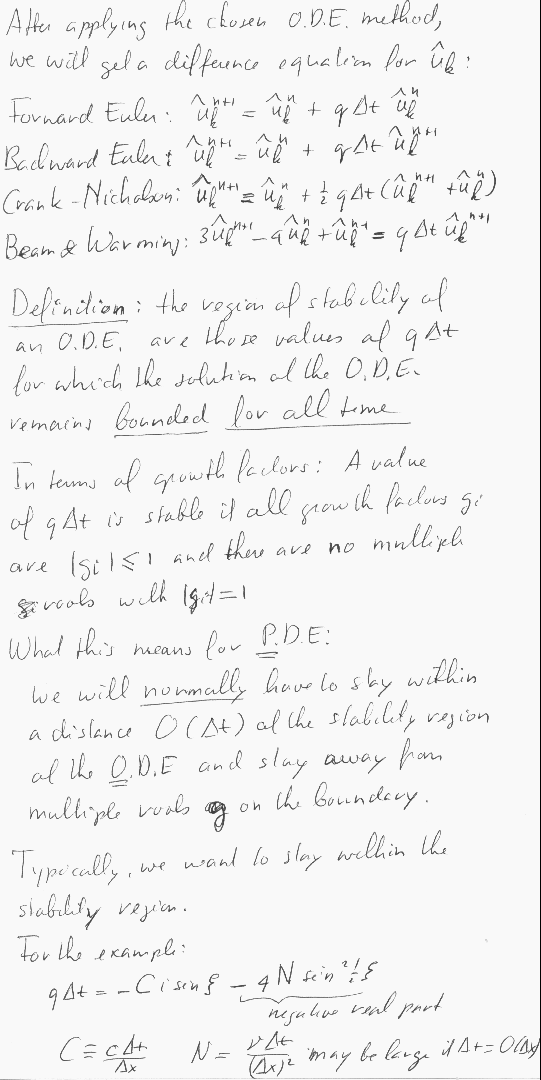 After applying the chosen O.D.E. method,
we will get a difference equation for û_k :
Forward Euler: û_k^{n+1} = û_k^n + q Δt û_k^n
Backward Euler: û_k^{n+1} = û_k^n + q Δt û_k^{n+1}
Crank-Nicholson: û_k^{n+1} = û_k^n + ½ q Δt (û_k^{n+1} + û_k^n)
Beam & Warming: 3û_k^{n+1} - 4û_k^n + û_k^{n-1} = q Δt û_k^{n+1}
Definition: the region of stability of
an O.D.E. are those values of q Δt
for which the solution of the O.D.E.
remains bounded for all time
In terms of growth factors: A value
of q Δt is stable if all growth factors g_i
are |g_i| ≤ 1 and there are no multiple
roots with |g_i| = 1
What this means for P.D.E:
we will normally have to stay within
a distance O(Δt) of the stability region
of the O.D.E and stay away from
multiple roots on the boundary.
Typically, we want to stay within the
stability region.
For the example:
q Δt = - C i sin ξ - 4 N sin² ½ ξ
negative real part
C ≡ cΔt/Δx N = νΔt/(Δx)² may be large if Δt = O(Δx)